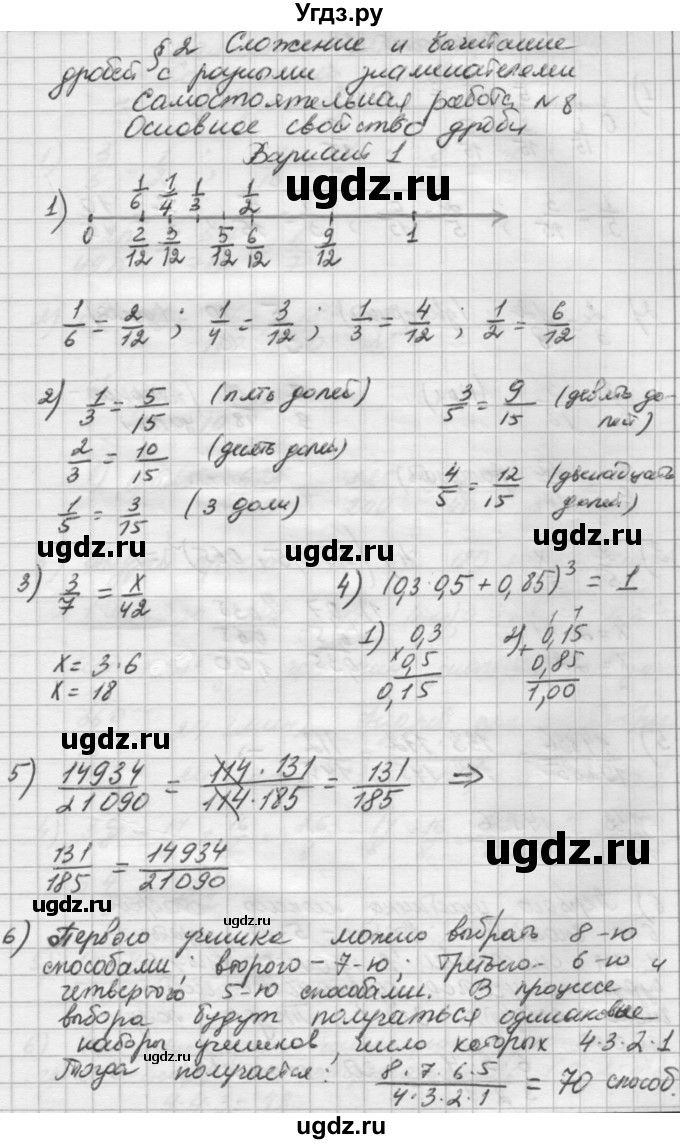 Угдз.ру
§2 Сложение и вычитание
дробей с разными знаменателями
Самостоятельная работа №8
Основное свойство дроби
Вариант 1
ugdz.ru
1) 1/6 1/4 1/3 1/2
0 2/12 3/12 5/12 6/12 9/12 1
1/6 = 2/12 ; 1/4 = 3/12 ; 1/3 = 4/12 ; 1/2 = 6/12
2) 1/3 = 5/15 (пять долей) 3/5 = 9/15 (девять до-
лей)
2/3 = 10/15 (десять долей)
4/5 = 12/15 (двенадцать
долей)
1/5 = 3/15 (3 доли)
ugdz.ru ugdz.ru
3) 3/7 = x/42 4) (0,3·0,5 + 0,85)³ = 1
1) 0,3 2) 0,15
x 0,5 + 0,85
0,15 1,00
x = 3·6
x = 18
ugdz.ru
5) 14934/21090 = 114·131/114·185 = 131/185 ⇒
131/185 = 14934/21090
ugdz.ru
ugdz.ru
6) Первого ученика можно выбрать 8-ю
способами; второго - 7-ю; Третьего - 6-ю и
четвертого 5-ю способами. В процессе
выбора будут получаться одинаковые
наборы учеников, число которых 4·3·2·1
Тогда получается: 8·7·6·5/4·3·2·1 = 70 способ.
ugdz.ru
ugdz.ru